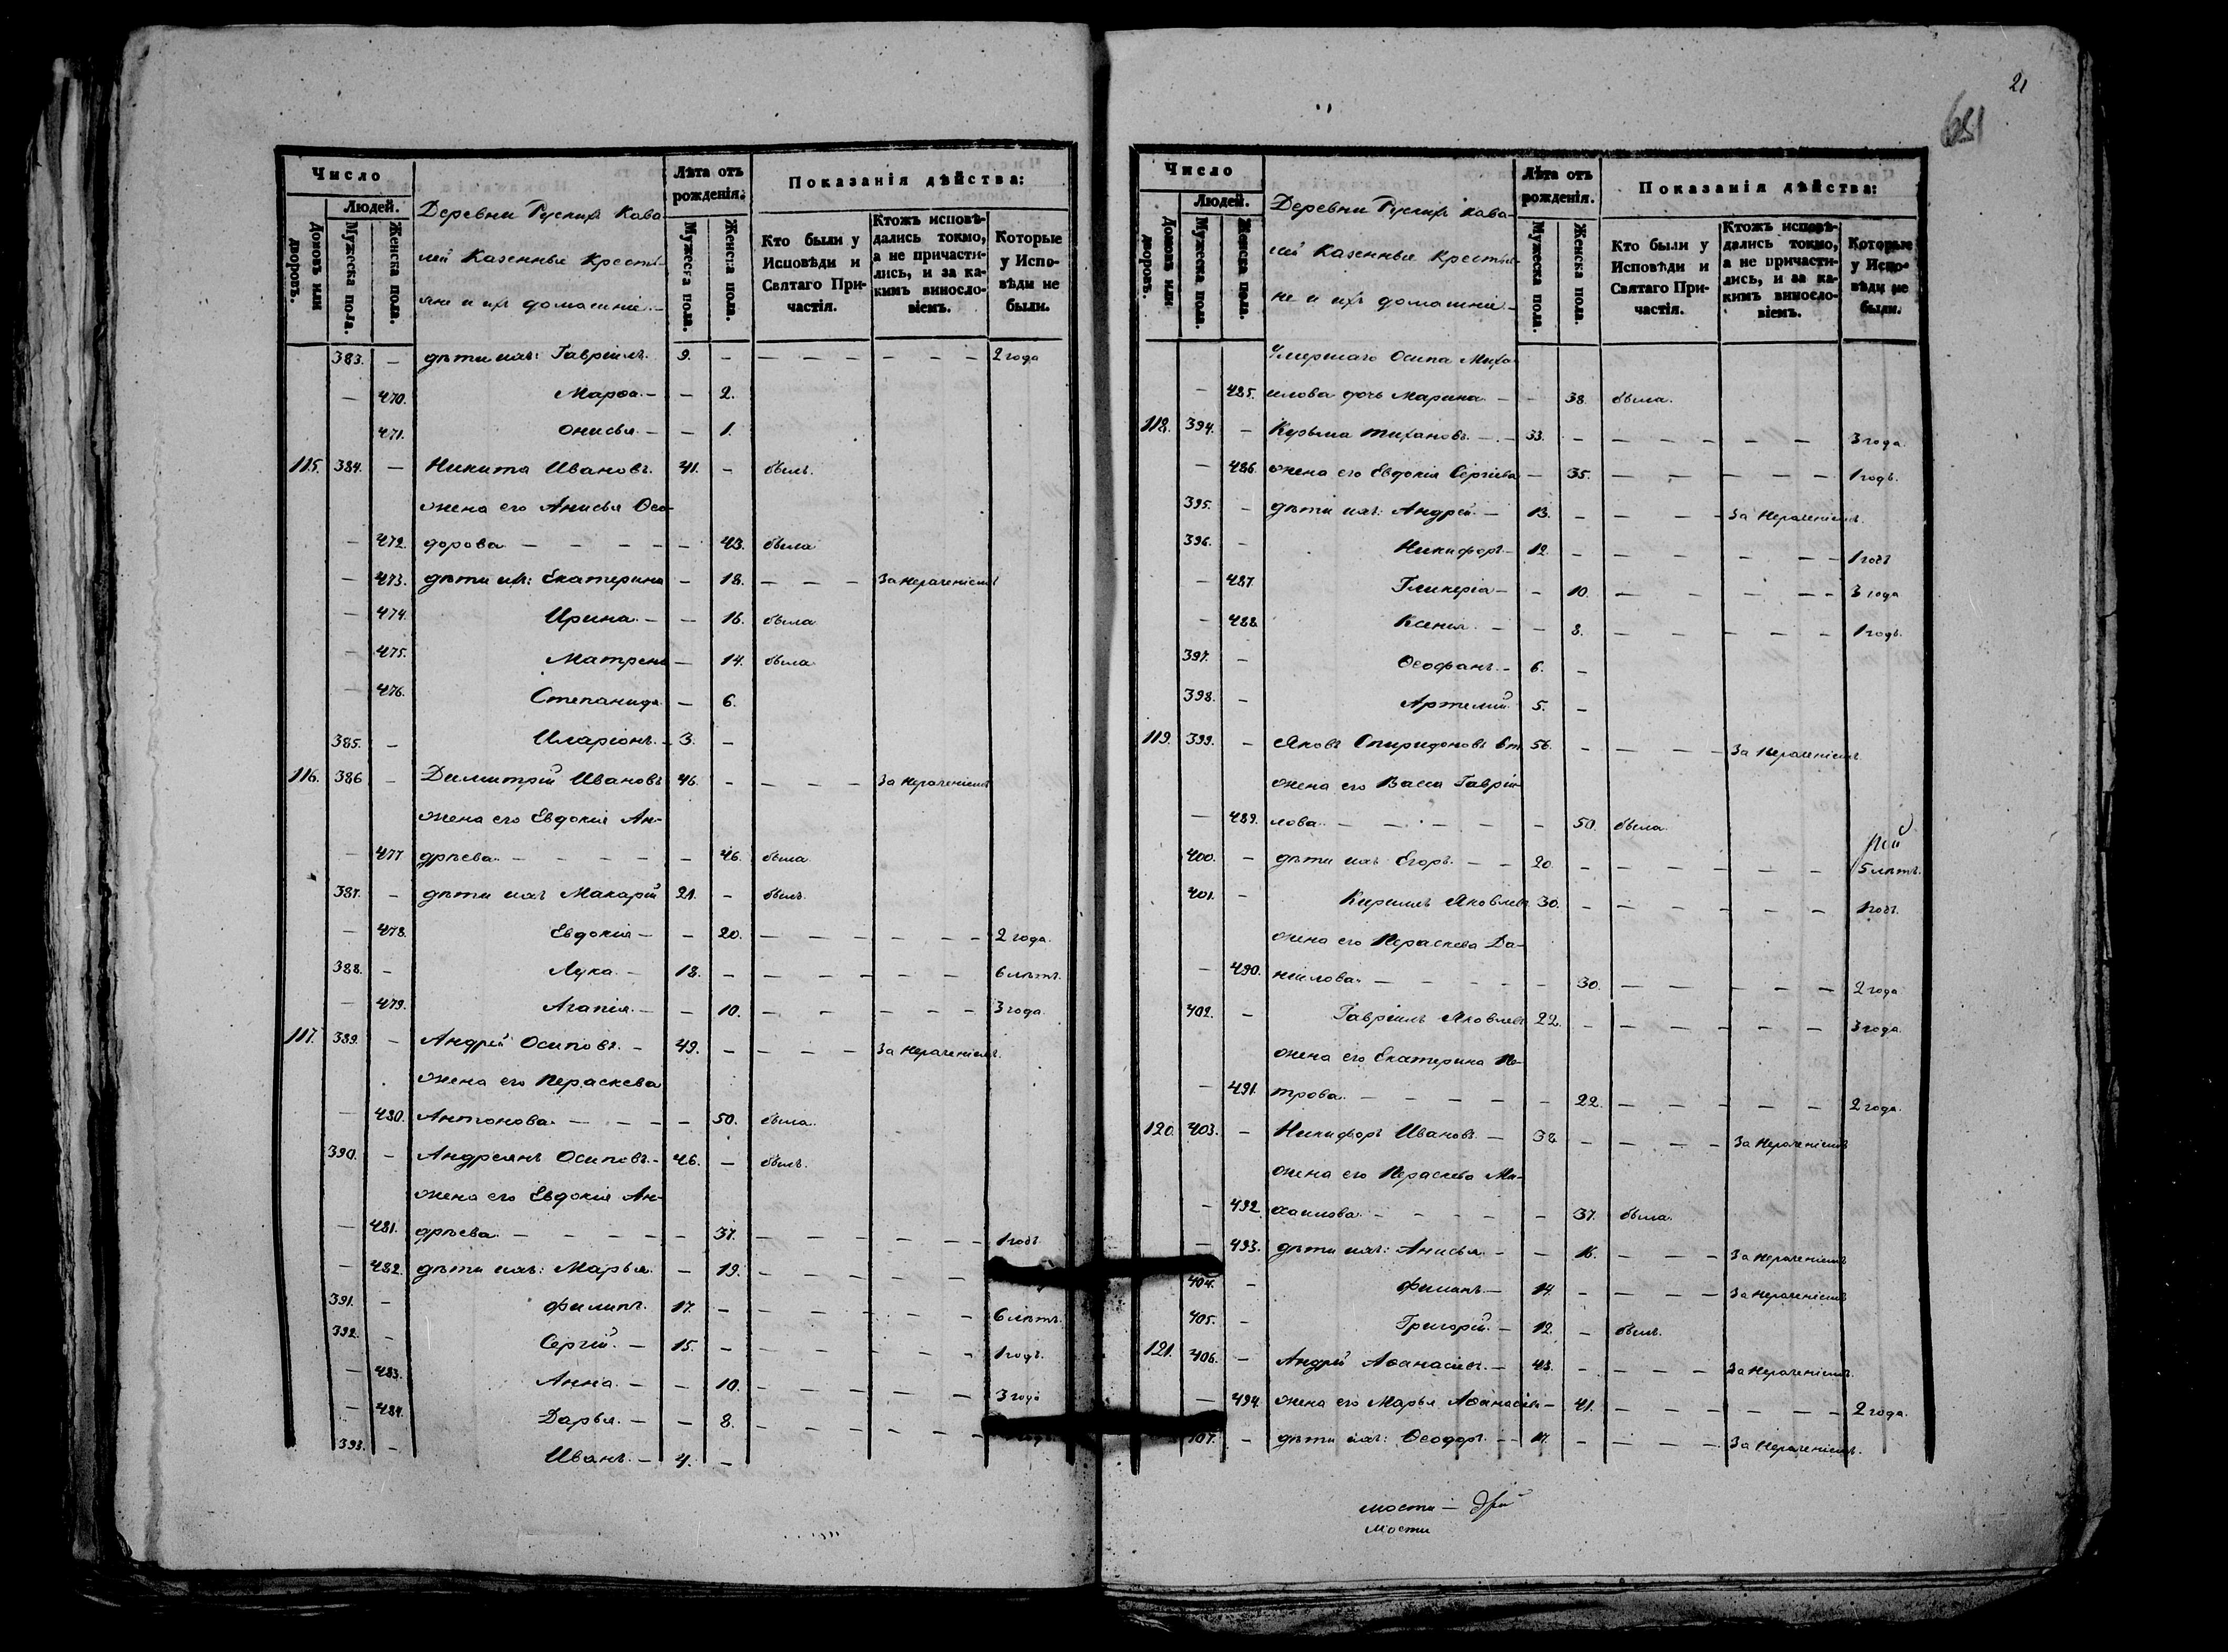 Число
Людей.
Домовъ или дворовъ.
Мужеска пола.
Женска пола.
Деревни Руских Кава-
лей Казенные Крестья-
яне и ихъ домашніе. –
Лѣта отъ рожденія.
Мужеска пола.
Женска пола.
Показанія дѣйства:
Кто были у Исповѣди и Святаго Причастія.
Ктожъ исповѣдались токмо, а не причастились, и за какимъ винословіемъ.
Которые у Исповѣди не были.
383. – дѣти ихъ: Гавріилъ. 9. – – – – – – – 2 года
– 470. Марѳа. – – 2.
471. Онисья. – – 1.
115. 384. – Никита Ивановъ. 41. – былъ.
жена его Анисья Ѳео-
– 472. дорова – – – – – 43. была
– 473. дѣти ихъ: Екатерина – 18. – – – За нераченіемъ
– 474. Ирина. – – 16. была
– 475. Матрена – 14. была
– 476. Степанида – 6.
385. – Иларіонъ. – 3. –
116. 386 – Димитрій Ивановъ 46. – – – – За нераченіемъ
жена его Евдокія Ан-
– 477 дрѣева. – – – – – 46. была
387. – дѣти ихъ Макарій 21. – былъ.
– 478. Евдокія – – 20. – – – – – – 2 года.
388. – Лука. – 18. – – – – – – – 6 лѣтъ.
– 479. Агапія. – – 10. – – – – – – 3 года.
117. 389. – Андрей Осиповъ. – 49. – – – – За нераченіемъ.
жена его Пераскева
– 480. Антонова. – – – – 50. была.
390. – Андреянъ Осиповъ. – 46. – былъ.
жена его Евдокія Ан-
– 481. дрѣева. – – – – – 37. – – – – – – 1 годъ
– 482. дѣти ихъ: Марья. – 19. – – – – –
391. – Филипъ. 17. – – – – – – 6 лѣтъ.
392. – Сергій. – 15. – – – – – – 1 годъ.
– 483. Анна. – – 10. – – – – – 3 года
– 484. Дарья. – – 8. – – – – – –
393. – Иванъ. – 4. –
21
681
Число
Людей.
Домовъ или дворовъ.
Мужеска пола.
Женска пола.
Деревни Руских Кава-
лей Казенные Крестья-
не и ихъ домашніе –
Лѣта отъ рожденія.
Мужеска пола.
Женска пола.
Показанія дѣйства:
Кто были у Исповѣди и Святаго Причастія.
Ктожъ исповѣдались токмо, а не причастились, и за какимъ винословіемъ.
Которые у Исповѣди не были.
Умершаго Осипа Миха-
– 485. илова дочь Марина – – 38. была.
118. 394. – Кузьма Тихановъ. – – 33. – – – – – – 3 года.
– 486. жена его Евдокія Сергіева – 35. – – – – – 1 годъ.
395. – дѣти ихъ: Андрей. – 13. – – – – За нераченіемъ.
396. – Никифоръ – 12. – – – – – – 1 годъ
– 487. Гликерія – – 10. – – – – – 3 года
– 488. Ксенія. – – 8. – – – – – 1 годъ.
397. – Ѳеофанъ. – 6. –
398. – Артемій. 5. –
119. 399. – Яковъ Спиридоновъ 56. – – – – За нераченіемъ.
жена его Васса Гаврій-
– 489. лова. – – – – – – 50. была.
400. – дѣти ихъ Егоръ. – – 20. – – – – – – 5 лѣтъ.
401. – Кирилъ Яковлевъ 30. – – – – – – 1 годъ.
жена его Пераскева Да-
– 490. ніилова. – – – – – 30. – – – – – 2 года
402. – Гавріилъ Яковлевъ 22. – – – – – – 3 года.
жена его Екатерина Пе-
– 491. трова. – – – – – 22. – – – – – 2 года.
120. 403. – Никифоръ Ивановъ. – 38. – – – – За нераченіемъ
жена его Пераскева Ми-
– 492. хаилова. – – – – – 37. была.
– 493. дѣти ихъ: Анисья. – – 16. – – – За нераченіемъ
404. – Филипъ. – 14. – – – – За нераченіемъ
405. – Григорій. – 12. – былъ.
121. 406. – Андрей Аѳанасіевъ. – 43. – – – – За нераченіемъ.
– 494. жена его Марья Аѳанасіева – 41. – – – – – – 2 года.
407. – дѣти ихъ: Ѳеодоръ. – 17. – – – – За нераченіемъ.
мости –
мости